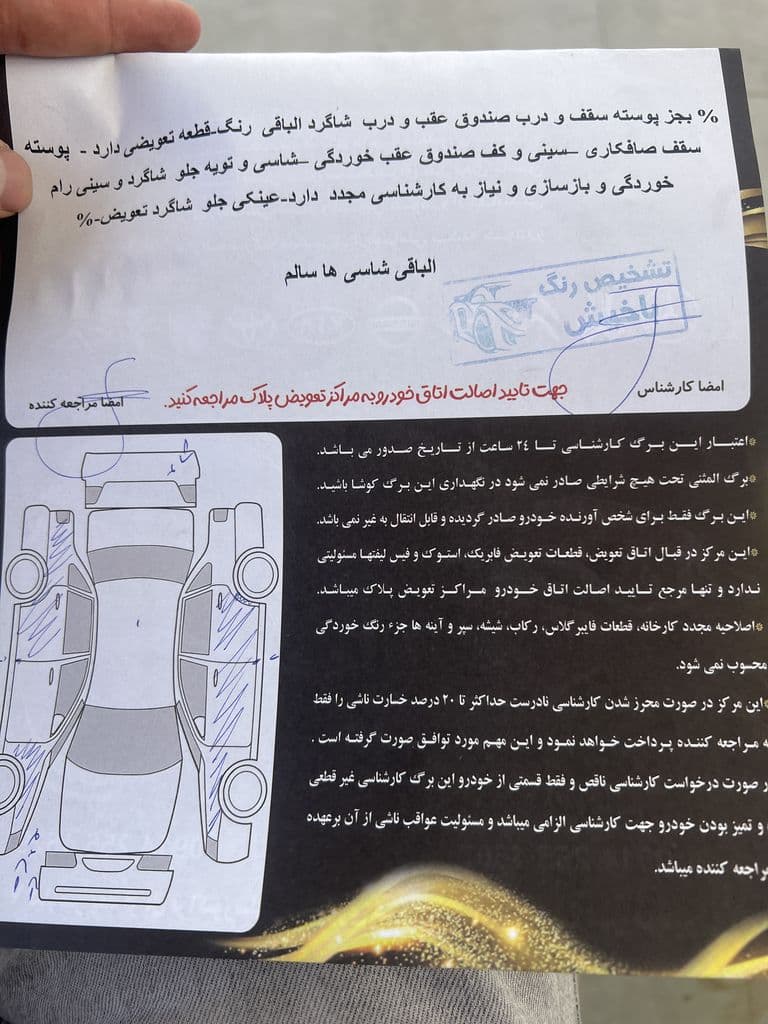 % بجز پوسته سقف و درب صندوق عقب و درب شاگرد الباقی رنگ-قطعه تعویضی دارد - پوسته
سقف صافکاری –سینی و کف صندوق عقب خوردگی –شاسی و تویه جلو شاگرد و سینی رام
خوردگی و بازسازی و نیاز به کارشناسی مجدد دارد-عینکی جلو شاگرد تعویض-%
الباقی شاسی ها سالم
تشخیص رنگ
امضا کارشناس
جهت تایید اصالت اتاق خودرو به مراکز تعویض پلاک مراجعه کنید.
امضا مراجعه کننده
*اعتبار این برگ کارشناسی تا ۲۴ ساعت از تاریخ صدور می باشد.
*برگ المثنی تحت هیچ شرایطی صادر نمی شود در نگهداری این برگ کوشا باشید.
*این برگ فقط برای شخص آورنده خودرو صادر گردیده و قابل انتقال به غیر نمی باشد.
*این مرکز در قبال اتاق تعویض، قطعات تعویض فابریک، استوک و فیس لیفتها مسئولیتی
ندارد و تنها مرجع تایید اصالت اتاق خودرو مراکز تعویض پلاک میباشد.
*اصلاحیه مجدد کارخانه، قطعات فایبرگلاس، رکاب، شیشه، سپر و آینه ها جزء رنگ خوردگی
محسوب نمی شود.
*این مرکز در صورت محرز شدن کارشناسی نادرست حداکثر تا ۲۰ درصد خسارت ناشی را فقط
به مراجعه کننده پرداخت خواهد نمود و این مهم مورد توافق صورت گرفته است .
در صورت درخواست کارشناسی ناقص و فقط قسمتی از خودرو این برگ کارشناسی غیر قطعی
و تمیز بودن خودرو جهت کارشناسی الزامی میباشد و مسئولیت عواقب ناشی از آن برعهده
مراجعه کننده میباشد.